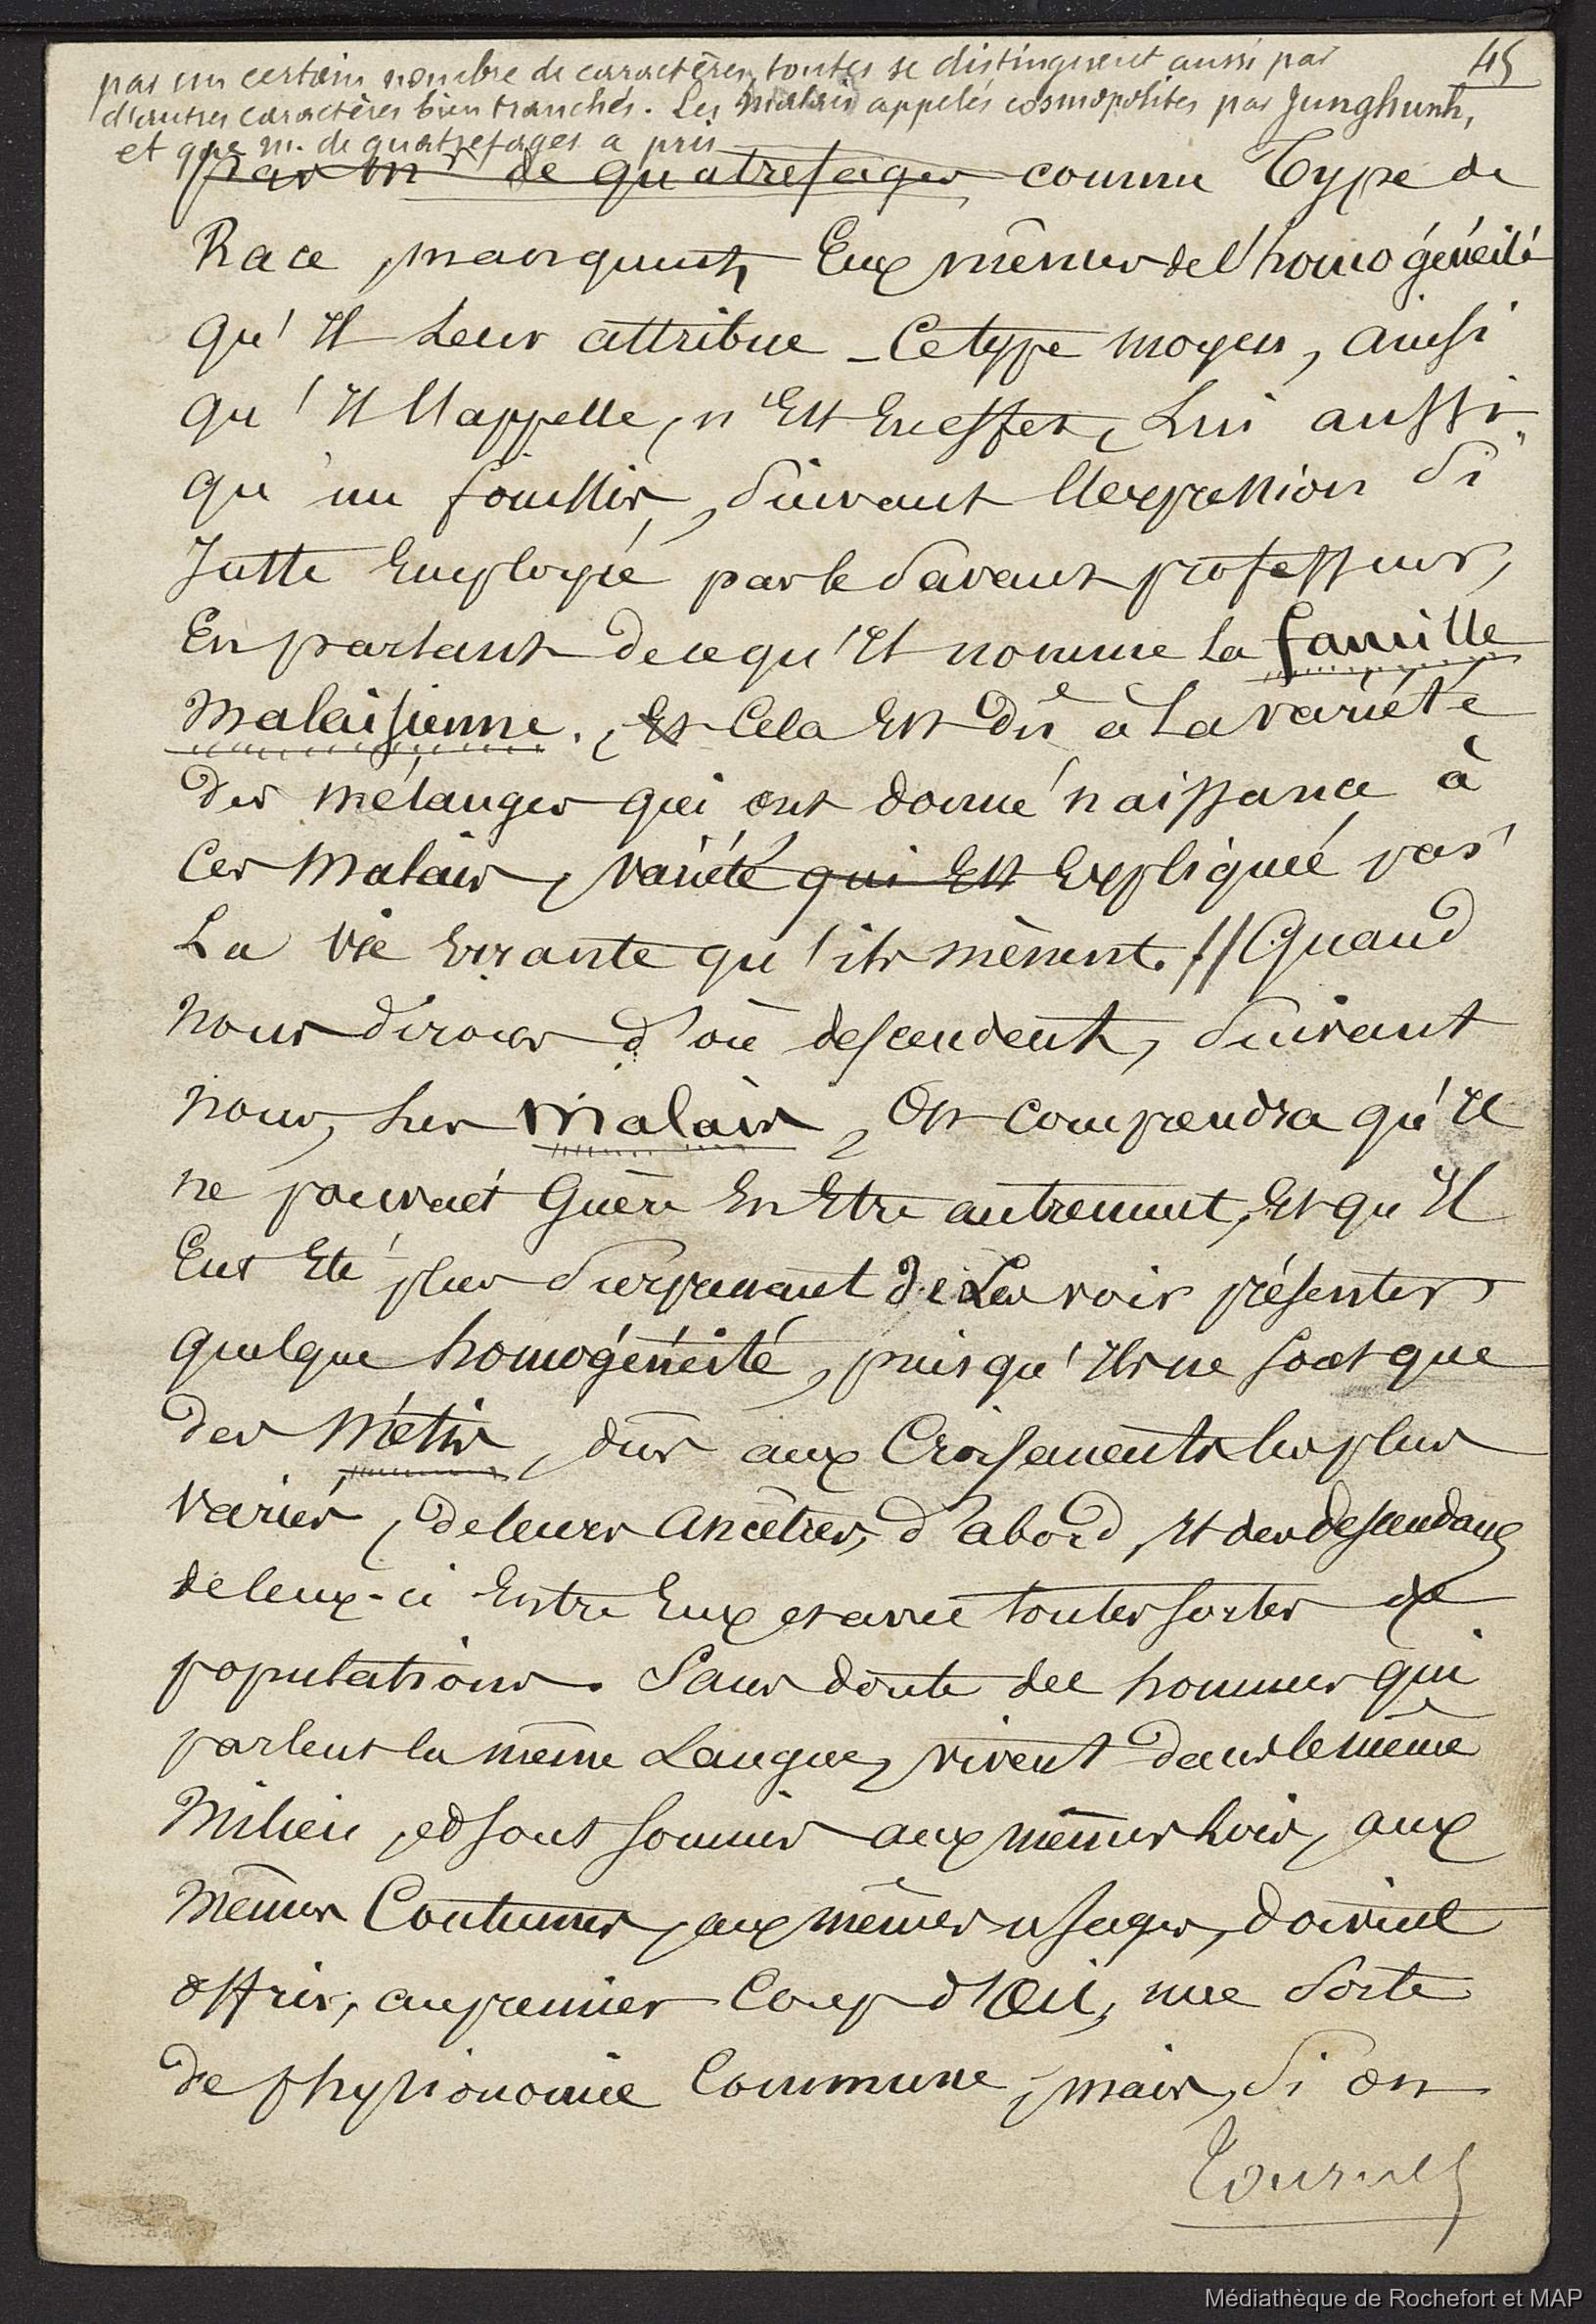 45
par un certain nombre de caractères, toutes se distinguent aussi par
d'autres caractères bien tranchés. Les malais appelés cosmopolites par Junghunh,
et que m. de quatrefages a pris
par Mr de quatrefages comme Type de
Race, manquent, Eux mêmes de l'homogénéité
qu'Il Leur attribue – Ce type moyen, ainsi
qu'Il l'appelle, n'Est En effet, Lui aussi
qu'un fouillis, Suivant l'expression Si
Juste Employée par le Savant professeur,
En parlant de ce qu'Il nomme La famille
Malaisienne. Et Cela Est Dû à La variété
Des mélanges qui ont donné naissance à
Ces Malais, variété qui Est Expliquée par
La vie Errante qu'ils mènent. // Quand
nous dirons d'où descendent, Suivant
nous, Les Malais, On comprendra qu'Il
ne pouvait Guère En Etre autrement, Et qu'Il
Eut Eté plus Surprenant de Les voir présenter
quelque homogénéité, puisqu'Ils ne sont que
Des Métis, dûs aux Croisements les plus
variés, De leurs Ancêtres, d'abord, Et des descendans
de Ceux-ci Entre Eux et avec toutes sortes de
populations. Sans doute des hommes qui
parlent la même Langue, vivent Dans le même
Milieu, et sont soumis aux mêmes Lois, aux
Mêmes Coutumes, aux mêmes usages, doivent
offrir, au premier Coup d'Œil, une Sorte
De physionomie Commune, mais, Si on
Tournez
Médiathèque de Rochefort et MAP